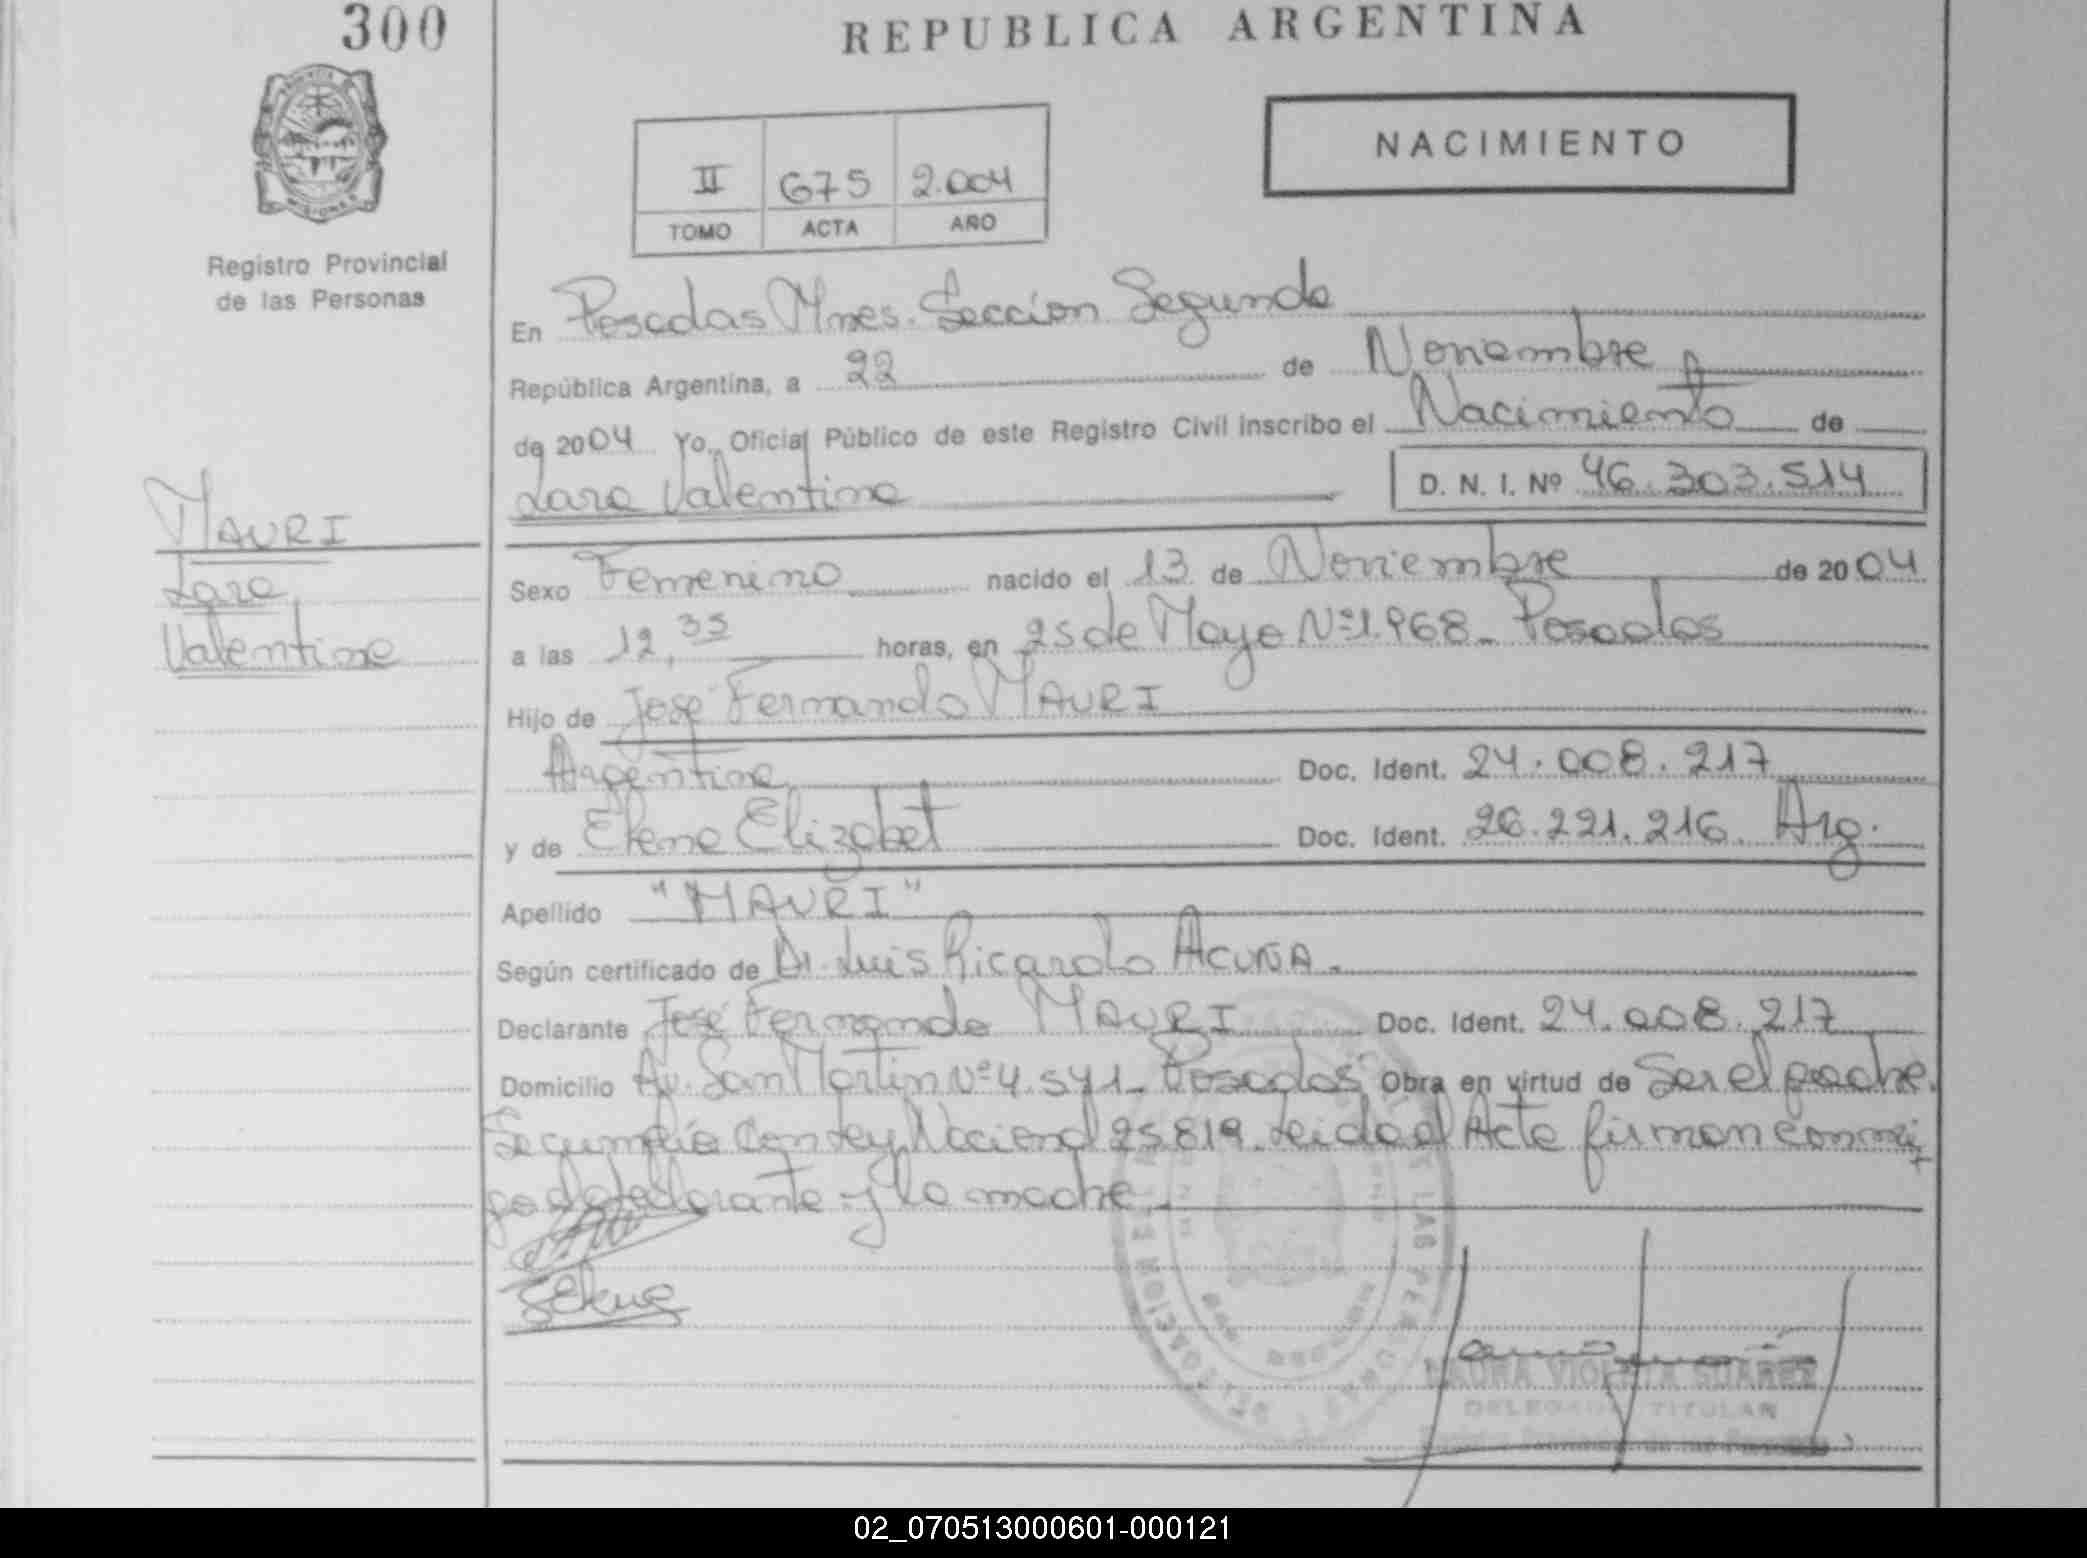 300
REPUBLICA ARGENTINA
NACIMIENTO
II 675 2.004
TOMO ACTA AÑO
MISIONES
Registro Provincial
de las Personas
En Posadas Mnes. Seccion Segunda
República Argentina, a 22 de Noviembre
de 2004 Yo, Oficial Público de este Registro Civil inscribo el Nacimiento de
Lara Valentina D. N. I. Nº 46.303.514
MAURI
Lara
Valentina
Sexo Femenino nacido el 13 de Noviembre de 2004
a las 12,35 horas, en 25 de Mayo Nº 1.968 - Posadas
Hijo de José Fernando MAURI
Argentina Doc. Ident. 24.008.217
y de Elizabet Doc. Ident. 26.221.216. Arg.
Apellido "MAURI"
Según certificado de Dr. Luis Ricardo ACUÑA.
Declarante José Fernando MAURI Doc. Ident. 24.008.217
Domicilio Av. San Martin Nº 4.541 - Posadas Obra en virtud de Ser el padre.
Se cumplió con Ley Nacional 25.819. Leida el Acta firman conmi
go el declarante y la madre.
LAURA VIOLETA SUAREZ
DELEGADA TITULAR
02_070513000601-000121